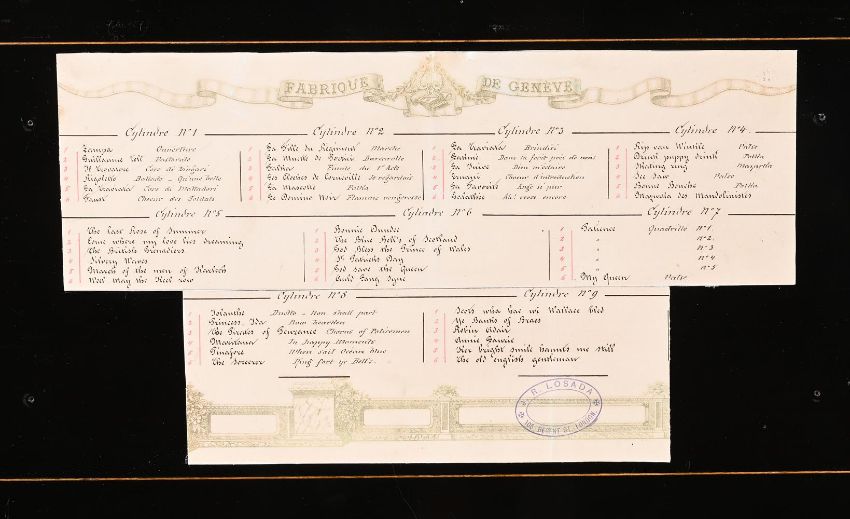 FABRIQUE DE GENÈVE
Cylindre N°1
1 Zampa Ouverture
2 Guillaume Tell Pastorale
3 Il Trovatore
4 Rigoletto Ballade - Questa o
5 La Traviata Coro di Mattadori
6 Faust Choeur des Soldats
Cylindre N°2
1 La Fille du Régiment Marche
2 La Muette de Portici Barcarolle
3
4 Les Cloches de Corneville Je regardais
5 La Mascotte Polka
6 Le Domino Noir
Cylindre N°3
1 La Traviata Brindisi
2 Dans la forêt près de nous
3
4 Choeur d'introduction
5 La Favorite Ange si pur
6 Ah! viens encore
Cylindre N°4
1 Rip van Winkle Valse
2 Drink puppy drink Polka
3 Skating ring Mazurka
4 See Saw Valse
5 Bonne Bouche Polka
6 Magnolia des Mandolinistes
Cylindre N°5
1 The Last Rose of Summer
2 Come where my love lies dreaming
3 The British Grenadiers
4 Silvery Waves
5 March of the men of Harlech
6 Weel May the Keel row
Cylindre N°6
1 Bonnie Dundee
2 The Blue Bell's of Scotland
3 God Bless the Prince of Wales
4 St Patrick's Day
5 God save the Queen
6 Auld Lang Syne
Cylindre N°7
1 Patience Quadrille N°1
2 " N°2
3 " N°3
4 " N°4
5 " N°5
6 My Queen Valse
Cylindre N°8
1 Iolanthe Duetto - None shall part
2 Princess Ida
3 The Pirates of Penzance Chorus of Policemen
4 Maritana In happy Moments
5 Pinafore When sail Ocean blue
6 The Sorcerer Ring fort ye Bell's
Cylindre N°9
1 Scots wha hae wi Wallace bled
2 Ye Banks of Braes
3 Robin Adair
4 Annie Laurie
5 Her bright smile haunts me still
6 The old english gentleman
J. R. LOSADA
105 REGENT ST. LONDON